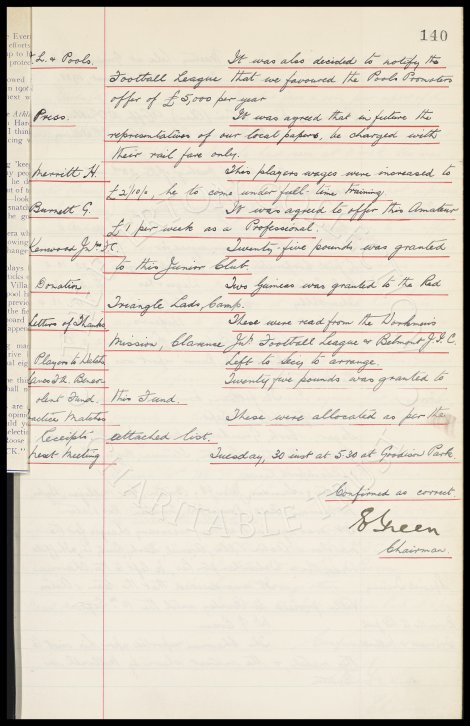 140
L. & Pools. It was also decided to notify the
Football League that we favoured the Pools Promoters
offer of £5,000 per year
Press. It was agreed that in future the
representatives of our local papers, be charged with
their rail fare only.
Merritt H. This players wages were increased to
£2/10/0, he to come under full-time training.
Burnett G. It was agreed to offer this Amateur
£1 per week as a Professional.
Kenwood Jnrs F.C. Twenty five pounds was granted
to this Junior Club.
Donation Two Guineas was granted to the Red
Triangle Lads, Camp.
Letters of Thanks These were read from the Workmens
Mission, Clarence Jn. Football League & Belmont J.F.C.
Players to Left to Secy to arrange.
Lancs F.A. Benev Twenty five pounds was granted to
olent Fund. this Fund.
Practice Matches These were allocated as per the
Receipts. attached list.
Next Meeting Tuesday, 30 inst at 5.30 at Goodison Park
Confirmed as correct.
E Green
Chairman
CHARITABLE TRUST